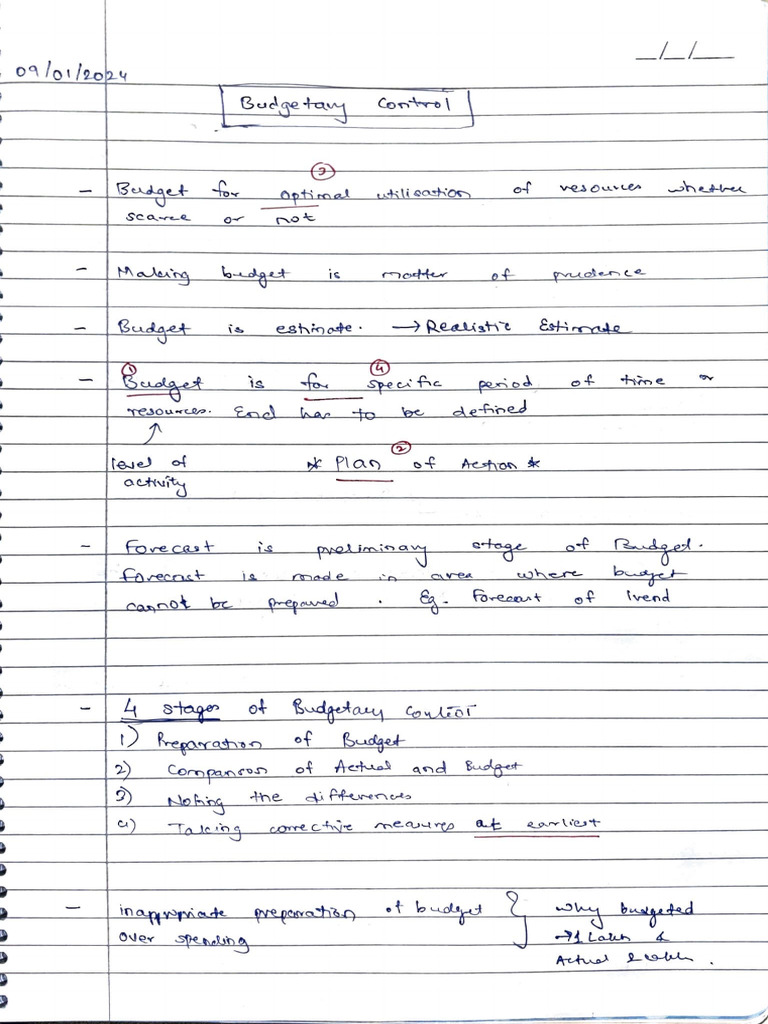 _/_/__
09/01/2024
Budgetary Control
③
- Budget for optimal utilisation of resources whether
scarce or not
- Making budget is matter of prudence
- Budget is estimate. → Realistic Estimate
① ④
- Budget is for specific period of time or
resources. End has to be defined
②
level of * Plan of Action *
activity
- Forecast is preliminary stage of Budget.
Forecast is made in area where budget
cannot be prepared. Eg. Forecast of Trend
- 4 stages of Budgetary Control
1) Preparation of Budget
2) Comparison of Actual and Budget
3) Noting the differences
4) Taking corrective measures at earliest
- inappropriate preparation of budget } why budgeted
over spending → 1 Lakh &
Actual 2 lakh.